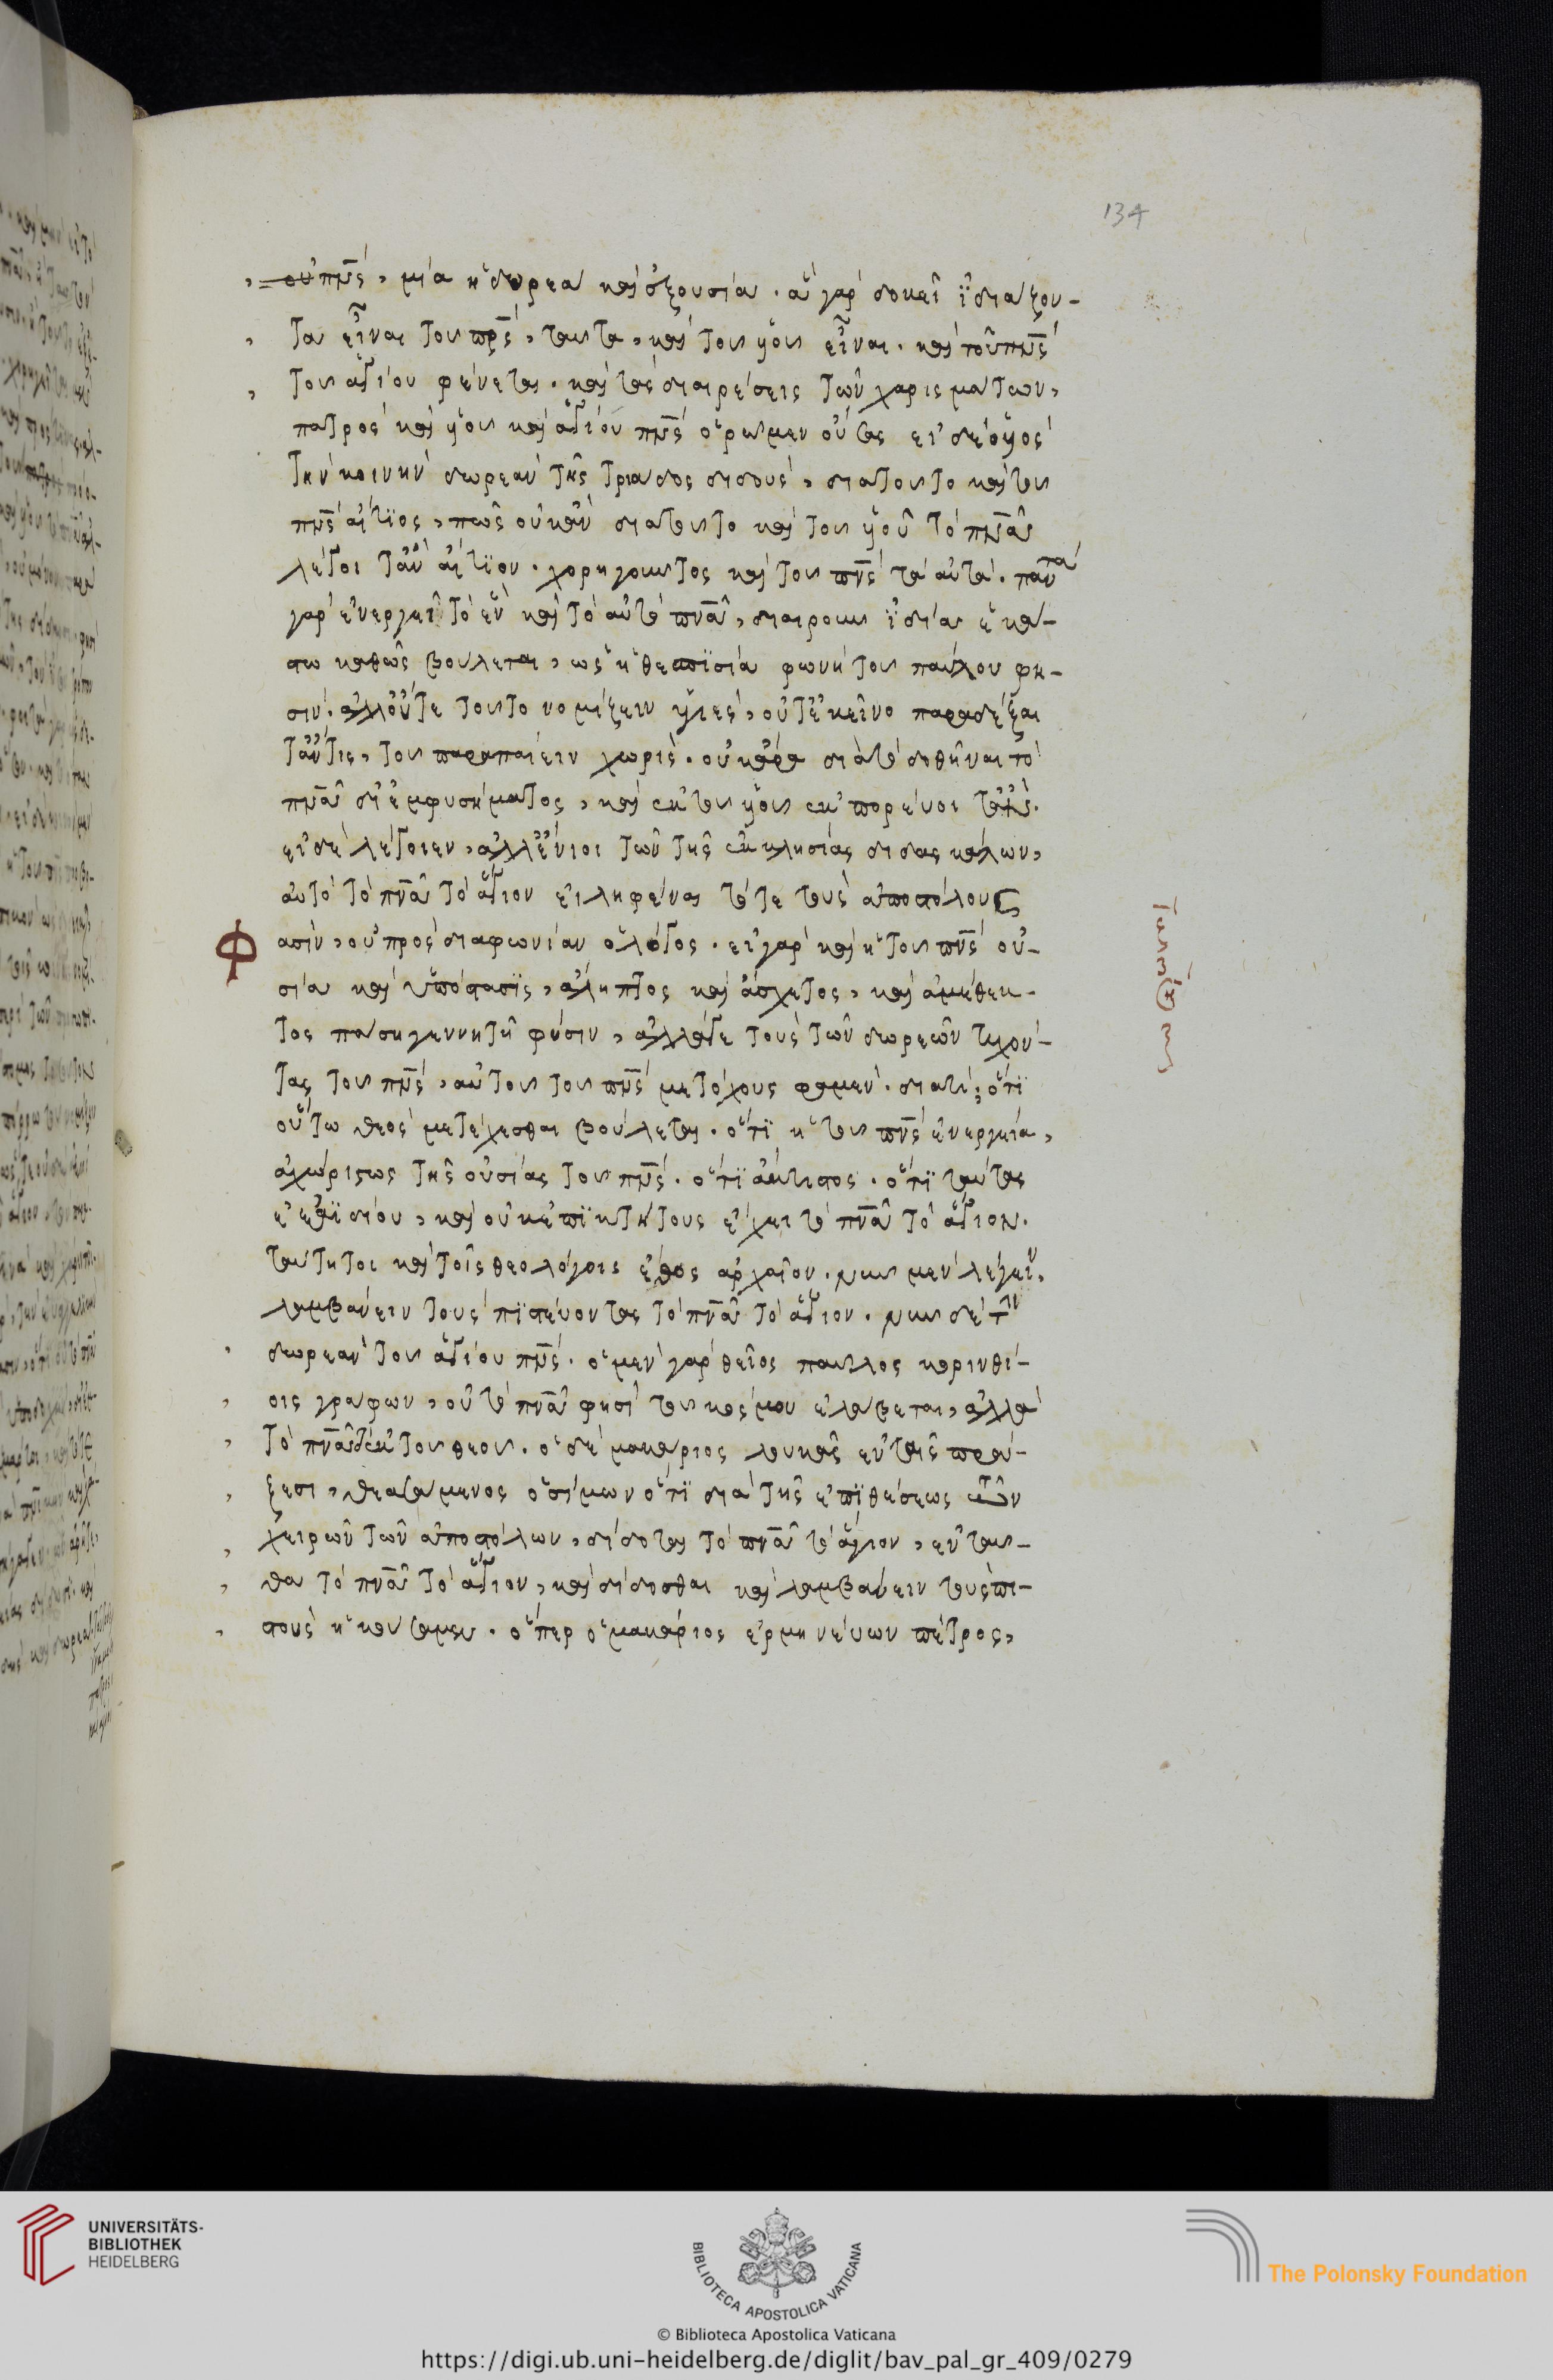 134
οὐ πν̅ς̅, μία ἡ δωρεὰ καὶ ἐξουσία. ἃ γὰρ δοκεῖ ἰδιάζον-
τα εἶναι τοῦ πρ̅ς̅, ταῦτα καὶ τοῦ υἱοῦ εἶναι. καὶ τοῦ πν̅ς̅
τοῦ ἁγίου φαίνεται. καὶ τὰς διαιρέσεις τῶν χαρισμάτων,
πατρὸς καὶ υἱοῦ καὶ ἁγίου πν̅ς̅ ὁρῶμεν οὔσας εἰ δὲ ὁ υἱὸς
τὴν κοινὴν δωρεὰν τῆς τριάδος διδοὺς, διατοῦτο καὶ τοῦ
πν̅ς̅ αἴτιος, πῶς οὐκ ἂν διατοῦτο καὶ τοῦ υἱοῦ τὸ πν̅α̅
λέγοιτ' ἂν αἴτιον. χορηγοῦντος καὶ τοῦ πν̅ς̅ τὰ αὐτά. πάντα
γὰρ ἐνεργεῖ τὸ ἓν καὶ τὸ αὐτὸ πν̅α̅, διαιροῦν ἰδία ἑκά-
στω καθὼς βούλεται, ὡς ἡ θεσπισία φωνὴ τοῦ παύλου φη-
σίν. ἀλλ' οὔτε τοῦτο νομίζειν ὑγιὲς, οὔτ' ἐκεῖνο παραδέξαι
τ' ἄν τις, τοῦ παραπαίειν χωρίς. οὐκ ἄρα διὰ τὸ δοθῆναι τὸ
πν̅α̅ δι' ἐμφυσήματος, καὶ ἐκ τοῦ υἱοῦ ἐκπορεύοι
εἰ δὲ λέγοιεν, ἀλλ' ἔνιοι τῶν τῆς ἐκκλησίας διδασκάλων,
αὐτὸ τὸ πν̅α̅ τὸ ἅγιον εἰληφέναι τότε τοὺς ἀποστόλους
φασὶν, οὐ πρὸς διαφωνίαν ὁ λόγος. εἰ γὰρ καὶ ἡ τοῦ πν̅ς̅ οὐ-
σία καὶ ὑπόστασις, ἄληπτος καὶ ἄσχετος, καὶ ἀμέθεκ-
τος πάση γεννητῆ φύσιν, ἀλλά γε τοὺς τῶν δωρεῶν τυχόν-
τας τοῦ πν̅ς̅, αὐτοῦ τοῦ πν̅ς̅ μετόχους φαμέν. διατί; ὅτι
οὕτω θεὸς μετέχεσθαι βούλεται. ὅτι ἡ τοῦ πν̅ς̅ ἐνεργεία,
ἀχώριστος τῆς οὐσίας τοῦ πν̅ς̅. ὅτι ἄκτιστος. ὅτι ταύτας
ἐξ ἀϊδίου, καὶ οὐκ ἐπικτήτους ἔχει τὸ πν̅α̅ τὸ ἅγιον.
ταύτητοι καὶ τοῖς θεολόγοις ἔθος ἀρχαῖον. νῦν μὲν λέγειν,
λαμβάνειν τοὺς πιστεύοντας τὸ πν̅α̅ τὸ ἅγιον. νῦν δὲ τὴν
δωρεὰν τοῦ ἁγίου πν̅ς̅. ὁ μὲν γὰρ θεῖος παῦλος κορινθί-
οις γράφων, οὐ τὸ πν̅α̅ φησὶ τοῦ κόσμου ἐλάβεται, ἀλλὰ
τὸ πν̅α̅ τὸ ἐκ τοῦ θεοῦ. ὁ δὲ μακάριος λουκᾶς ἐν ταῖς πρά-
ξεσι, θεασάμενος ὁ σίμων ὅτι διὰ τῆς ἐπιθέσεως τῶν
χειρῶν τῶν ἀποστόλων, δίδοται τὸ πν̅α̅ τὸ ἅγιον, ἐνταῦ-
θα τὸ πν̅α̅ τὸ ἅγιον, καὶ δίδοσθαι καὶ λαμβάνειν τοὺς πι-
στοὺς ἠκούσαμεν. ὅπερ ὁ μακάριος ἑρμηνεύων πέτρος,
UNIVERSITÄTS-
BIBLIOTHEK
HEIDELBERG
BIBLIOTECA APOSTOLICA VATICANA
The Polonsky Foundation
© Biblioteca Apostolica Vaticana
https://digi.ub.uni-heidelberg.de/diglit/bav_pal_gr_409/0279